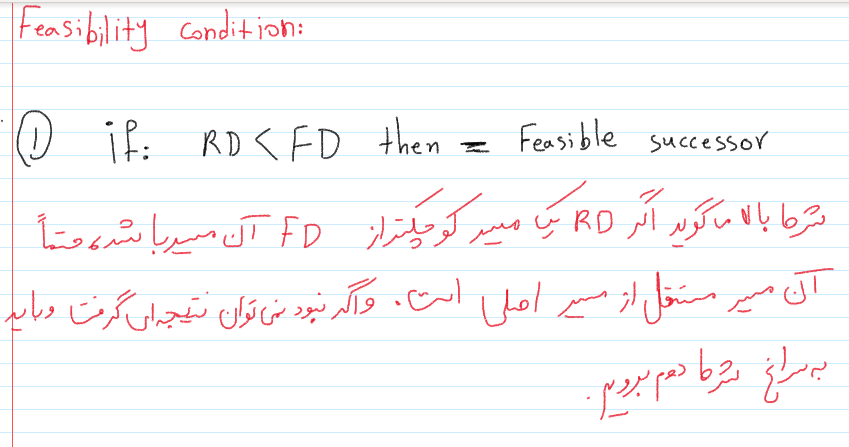 Feasibility condition:
① if: RD < FD then = Feasible successor
شرط بالا می‌گوید اگر RD یک مسیر کوچکتر از FD آن مسیر باشد، حتماً
آن مسیر مستقل از مسیر اصلی است. و اگر نبود نمی‌توان نتیجه‌ای گرفت و باید
به سراغ شرط دوم برویم.